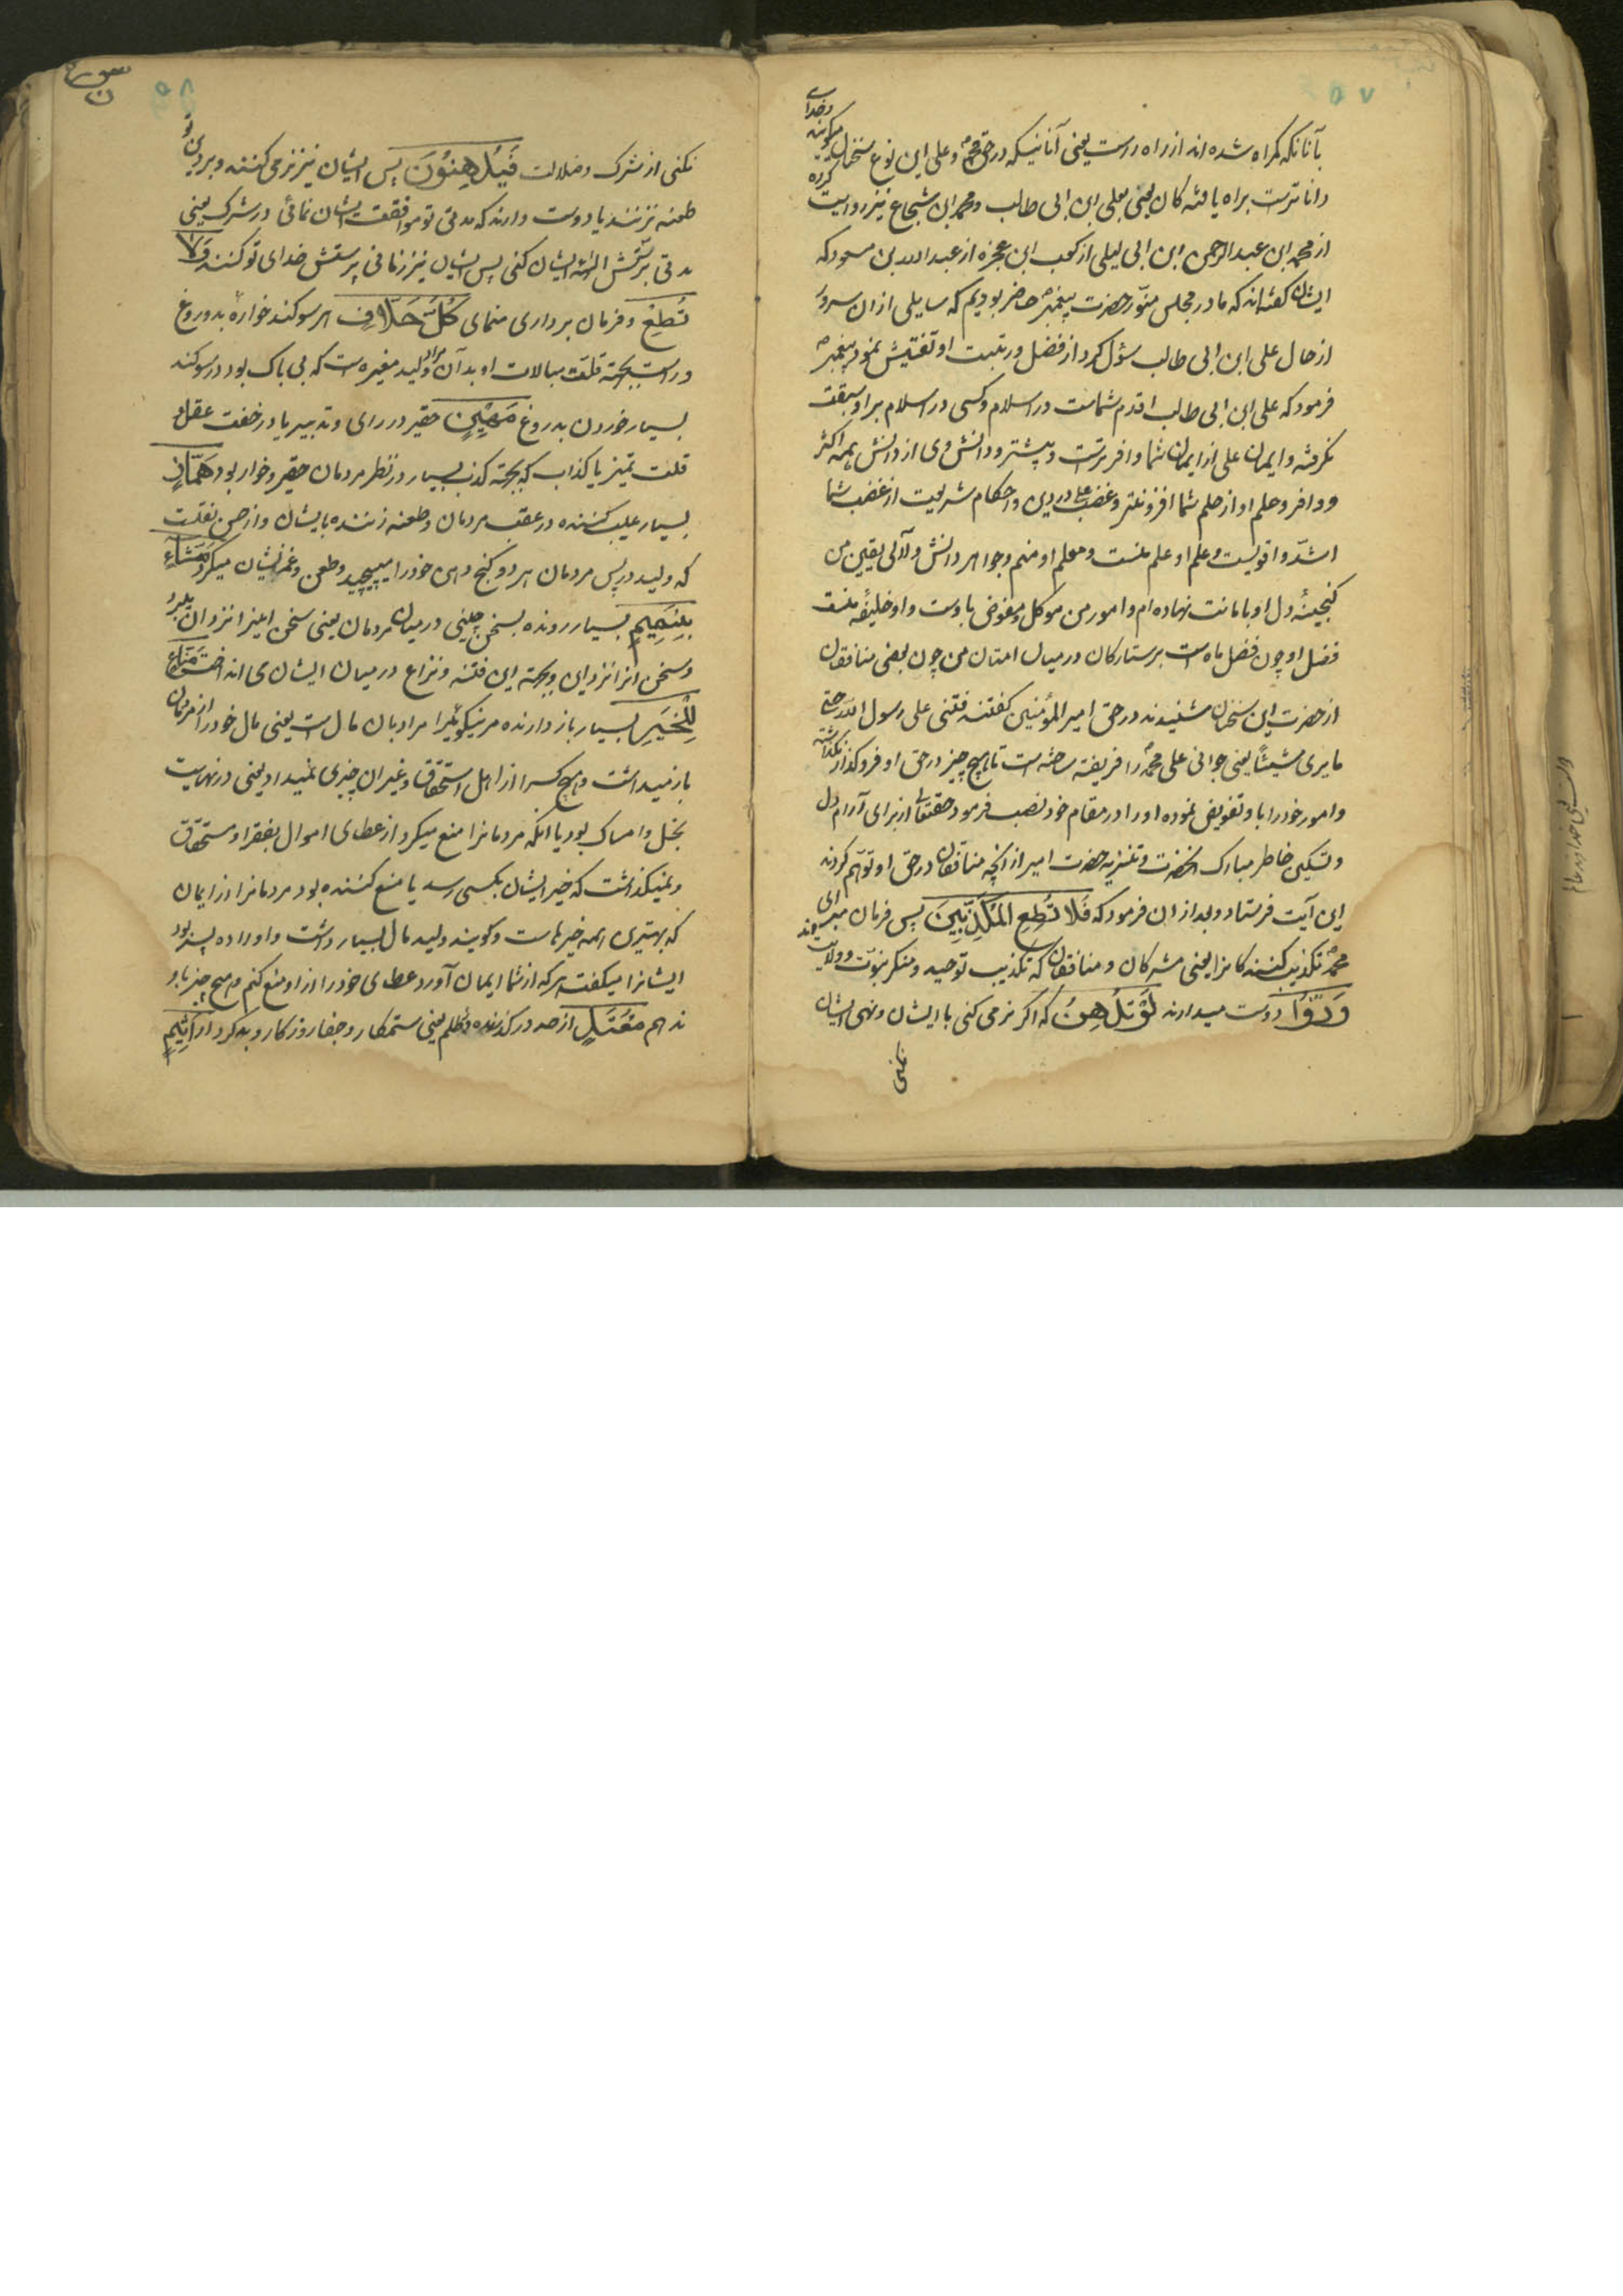 ۵۷
بآنانکه کمراه شده اند از راه راست یعنی آنانیکه در حق محمد و علی این نوع سخنان میکویند و خدای
داناترست براه یافته کان یعنی بعلی ابن ابی طالب و محمد ابن شجاع نیز روایت کرده
از محمد ابن عبد الرحمن ابن ابی لیلی از کعب ابن عجزه از عبد الله بن مسعود که
ایشان کفته اند که ما در مجلس منور حضرت پیغمبر حاضر بودیم که سایلی از ان سرور
از حال علی ابن ابی طالب سؤل کرد از فضل و رتبت او تفتیش نمود پیغمبر
فرمود که علی ابن ابی طالب اقدم شماست در اسلام و کسی در اسلام بر او سبقت
نکرفته و ایمان علی از ایمان شما وافرترست و بیشتر و دانش وی از دانش همه اکثر
و وافر و حلم او از حلم شما افزونتر و غضب علی در دین و احکام شریعت از غضب شما
اشد و اقویست و علم او علم منست و معلم او منم و جواهر دانش و لآلی یقین من
کنجینهٔ دل او بامانت نهاده ام و امور من موکل و مفوض باوست و او خلیفهٔ منست
فضل او چون فضل ماه است بر ستارکان در میان امتان من چون بعضی منافقان
از حضرت این سخنان شنیدند در حق امیر المؤمنین کفتند فتنی علی رسول الله حتی
ما یری شیئا یعنی جوانی علی محمد را فریفته ساخته است تا هیچ چیز در حق او فروکذار نکذاشته
و امور خود را باو تفویض نموده او را در مقام خود نصب فرمود حقتعالی از برای آرام دل
و تسکین خاطر مبارک انحضرت و تنزیه حضرت امیر از انچه منافقان در حق او توهم کردند
این آیت فرستاد و بعد از ان فرمود که فَلا تُطِعِ المُکَذِّبِینَ پس فرمان مبر ای
محمد تکذیب کننده کانرا یعنی مشرکان و منافقان که تکذیب توحید و منکر نبوت و ولایت اند
وَدُّوا دوست میدارند لَوْ تُدْهِنُ که اکر نرمی کنی با ایشان و نهی ایشان
نکنی
سوره ن
۵۸
نکنی از شرک و ضلالت فَیُدْهِنُونَ پس ایشان نیز نرمی کنند و بر دین تو
طعنه نزنند یا دوست دارند که مدتی تو موافقت ایشان نمائی در شرک یعنی
مدتی پرستش الهه ایشان کنی پس ایشان نیز زمانی پرستش خدای تو کنند وَلا
تُطِعْ و فرمان برداری منمای کُلَّ حَلّافٍ هر سوکند خواره بدروغ
و راست بجهة قلت مبالات او بدآن مراد ولید مغیره است که بی باک بود در سوکند
بسیار خوردن بدروغ مَهِینٍ حقیر در رای و تدبیر یا در خفت عقل و
قلت تمیز یا کذاب که بجهة کذب بسیار در نظر مردمان حقیر و خوار بود هَمّازٍ
بسیار عیب کننده در عقب مردمان و طعنه زننده بایشان و از حسن نقلست
که ولید در پس مردمان هر دو کنج دهن خود را میپیچید و طعن و غمز ایشان میکرد مَشّاءٍ
بِنَمِیمٍ بسیار رونده بسخن چینی در میان مردمان یعنی سخن اینرا نزد ان ببرد
و سخن انرا نزد این و بجهة این فتنه و نزاع در میان ایشان می انداخت مَنّاعٍ
لِلْخَیْرِ بسیار باز دارنده مر نیکوئیرا مراد بان مال است یعنی مال خود را از مردمان
باز میداشت و هیچ کسرا از اهل استحقاق و غیر ان چیزی نمیداد یعنی در نهایت
بخل و امساک بود یا انکه مردمانرا منع میکرد از عطای اموال بفقرا و مستحقان
و نمیکذاشت که خیر ایشان بکسی رسد یا منع کننده بود مردمانرا از ایمان
که بهترین همه خیرهاست و کویند ولید مال بسیار داشت و او را ده پسر بود
ایشانرا میکفت هر که از شما ایمان آورد عطای خود را از او منع کنم و هیچ چیز باو
ندهم مُعْتَدٍ از حد در کذرنده در ظلم یعنی ستمکار و جفا روزکار و بدکردار اَثِیمٍ